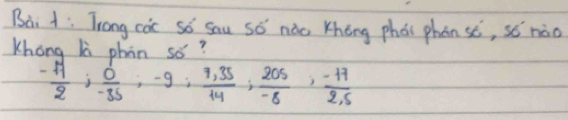 Bài 1: Trong các số sau số nào không phải phân số, số nào
không là phân số?
-11/2 ; 0/-35 ; -9 ; 7,35/14 ; 205/-8 ; -17/2,5